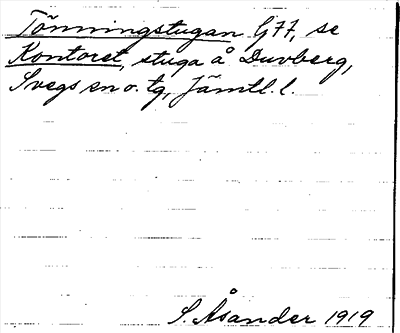 Tönningstugan G77, se
Kontoret, stuga å Duvberg,
Svegs sn o. tg, Jämtl. l.
S. Åsander 1919